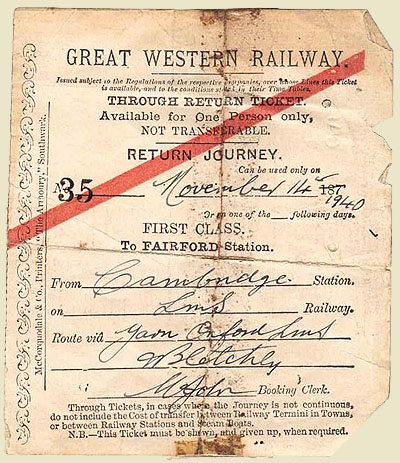 GREAT WESTERN RAILWAY.
Issued subject to the Regulations of the respective Companies, over whose Lines this Ticket
is available, and to the conditions stated in their Time Tables.
THROUGH RETURN TICKET.
Available for One Person only,
NOT TRANSFERABLE.
RETURN JOURNEY.
Can be used only on
A35 November 14 187 1940
Or on one of the following days.
FIRST CLASS.
To FAIRFORD Station.
From Cambridge Station.
on LMS Railway.
Route viâ Oxford LMS
Bletchley
Booking Clerk.
Through Tickets, in cases where the Journey is not continuous,
do not include the Cost of transfer between Railway Termini in Towns,
or between Railway Stations and Steam Boats.
N.B.—This Ticket must be shown, and given up, when required.
McCorquodale & Co., Printers, "The Armoury," Southwark.